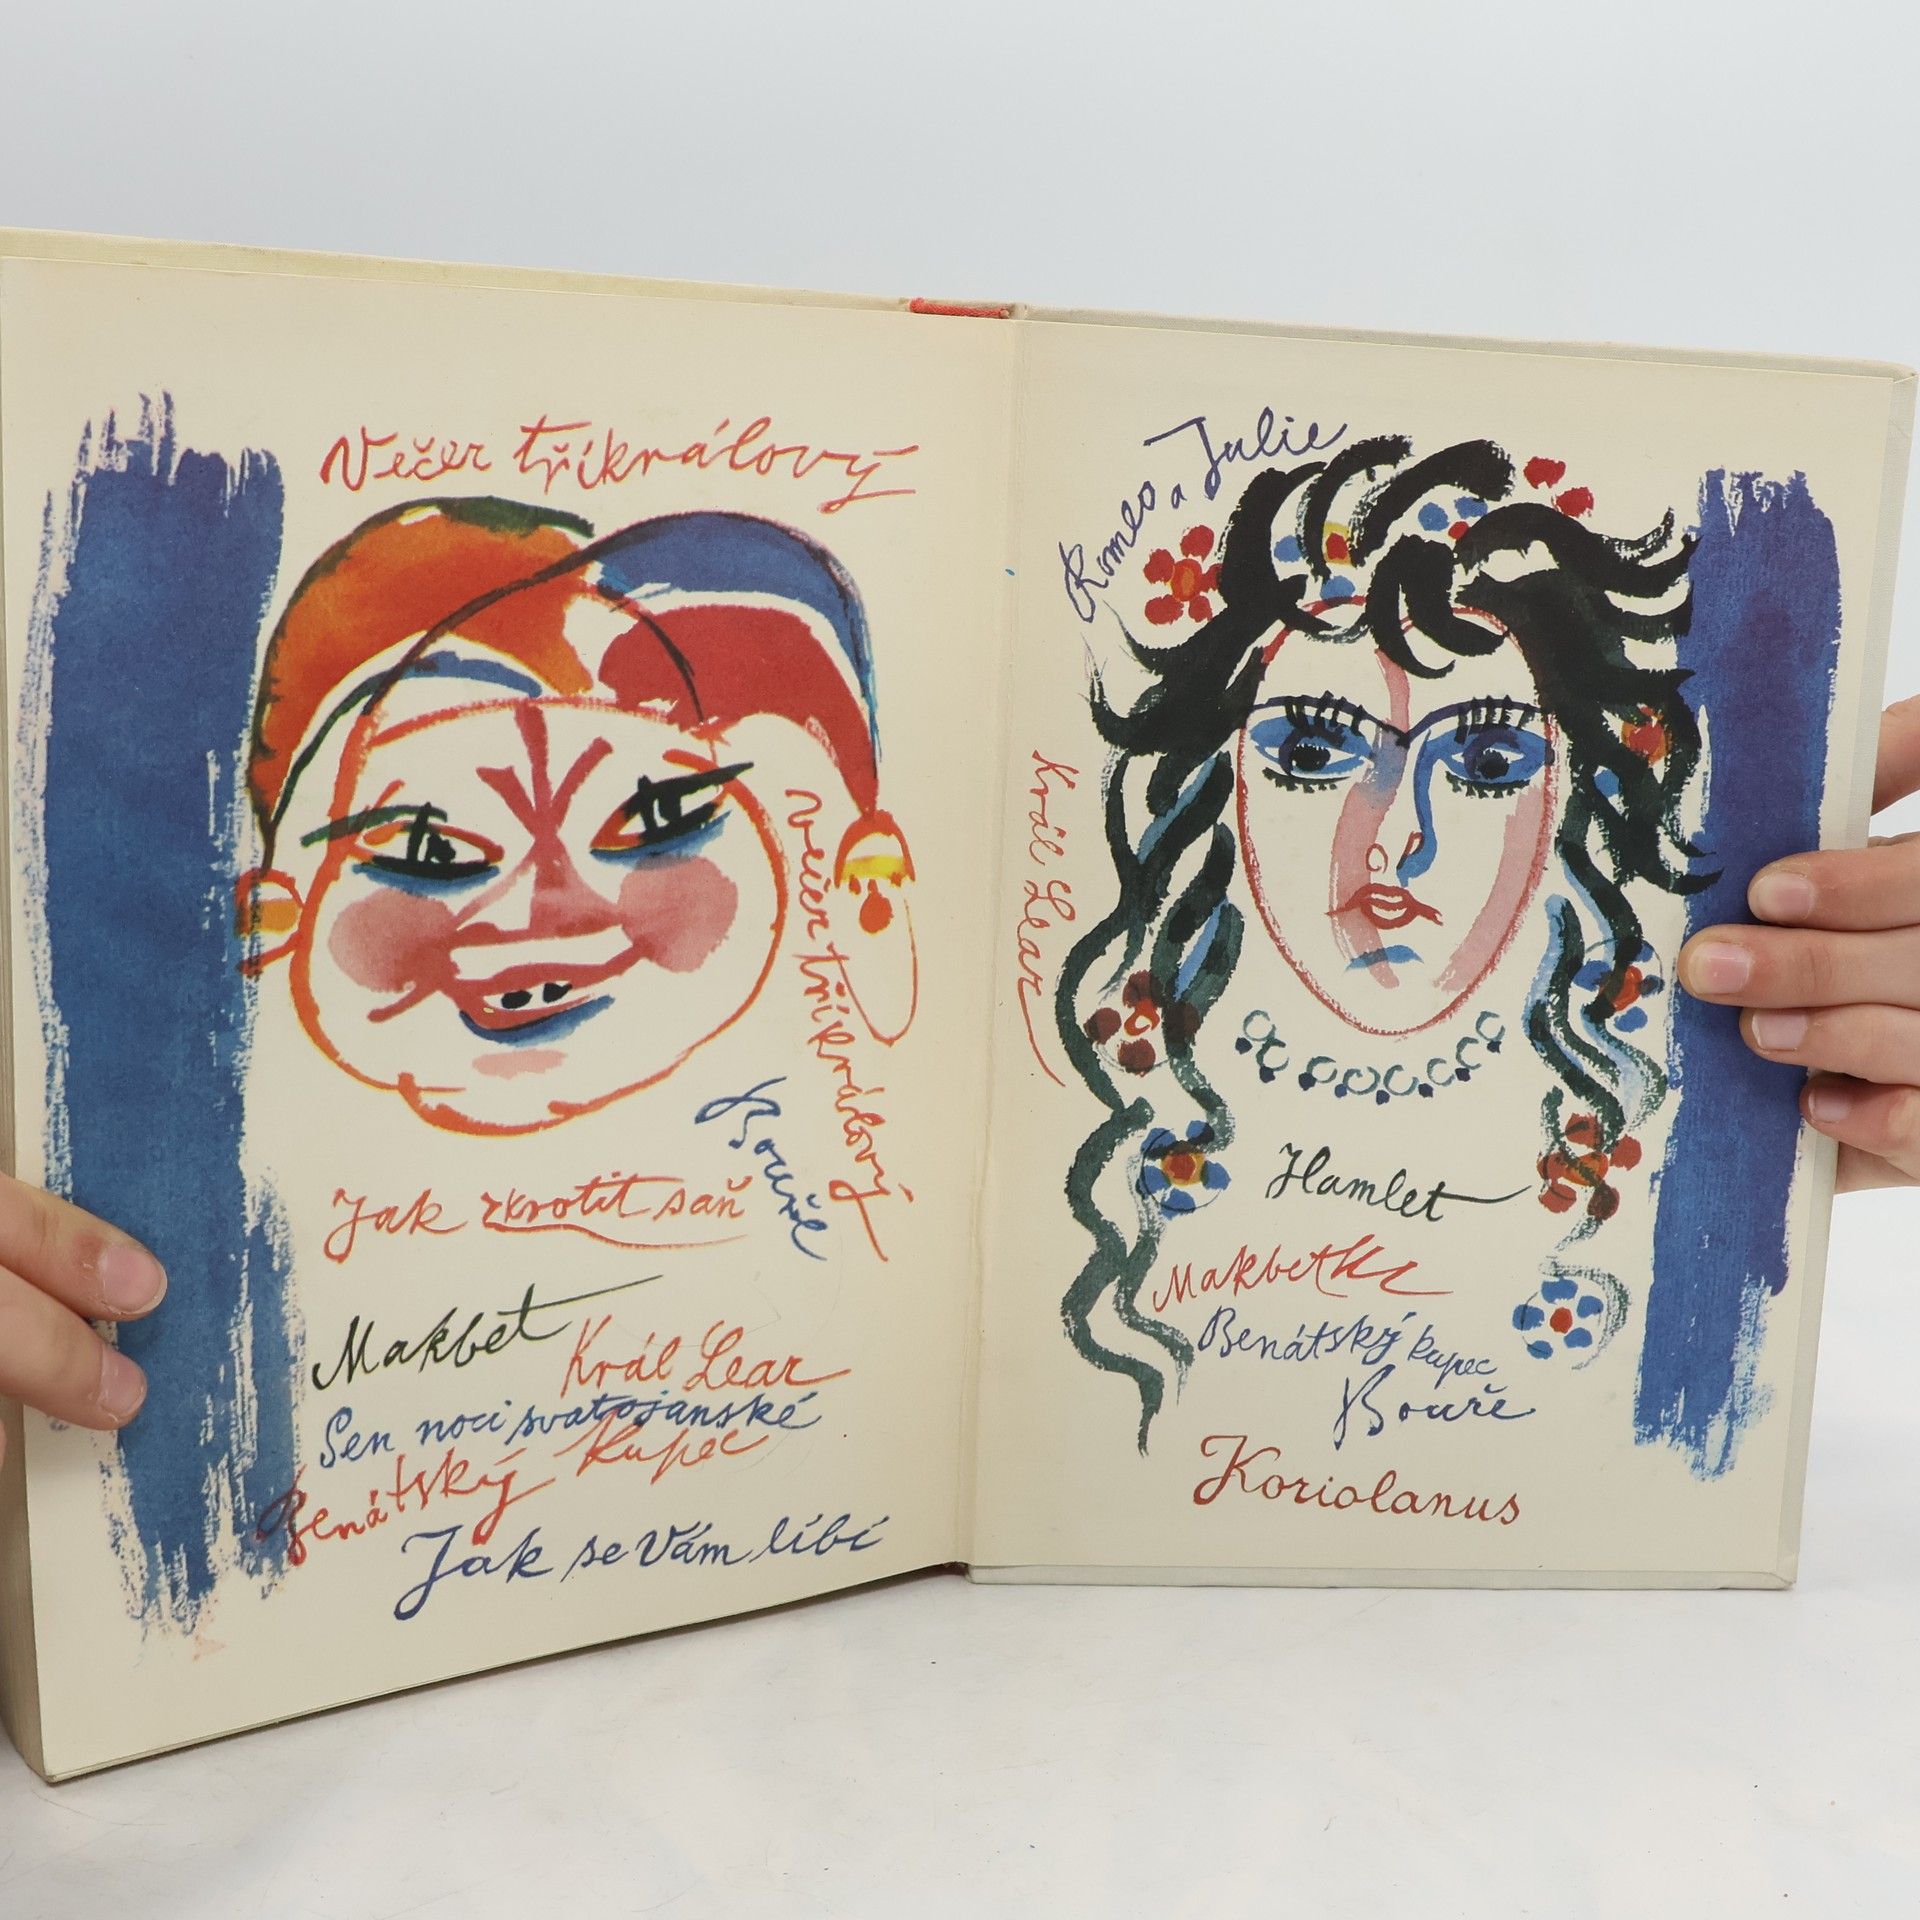 Večer tříkrálový
večer tříkrálový
Bouře
Jak zkrotit saň
Makbet
Král Lear
Sen noci svatojanské
Benátský kupec
Jak se Vám líbí
Romeo a Julie
Král Lear
Hamlet
Makbeth
Benátský kupec
Bouře
Koriolanus